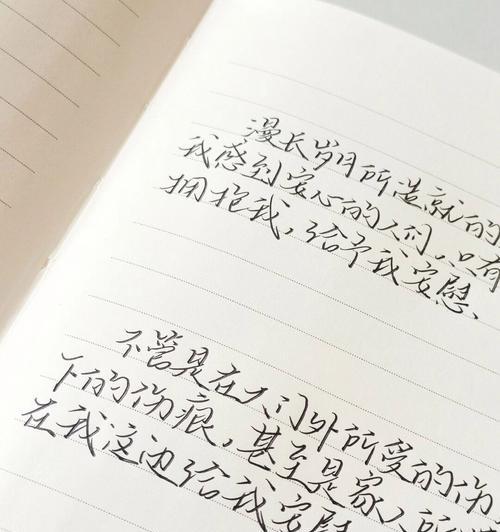 漫长岁月所造就的
我感到安心的人们，只有
拥抱我，给予我安慰、
不管是在大门外所受的伤
下的伤痕，甚至是家人所
在我这边给我安慰